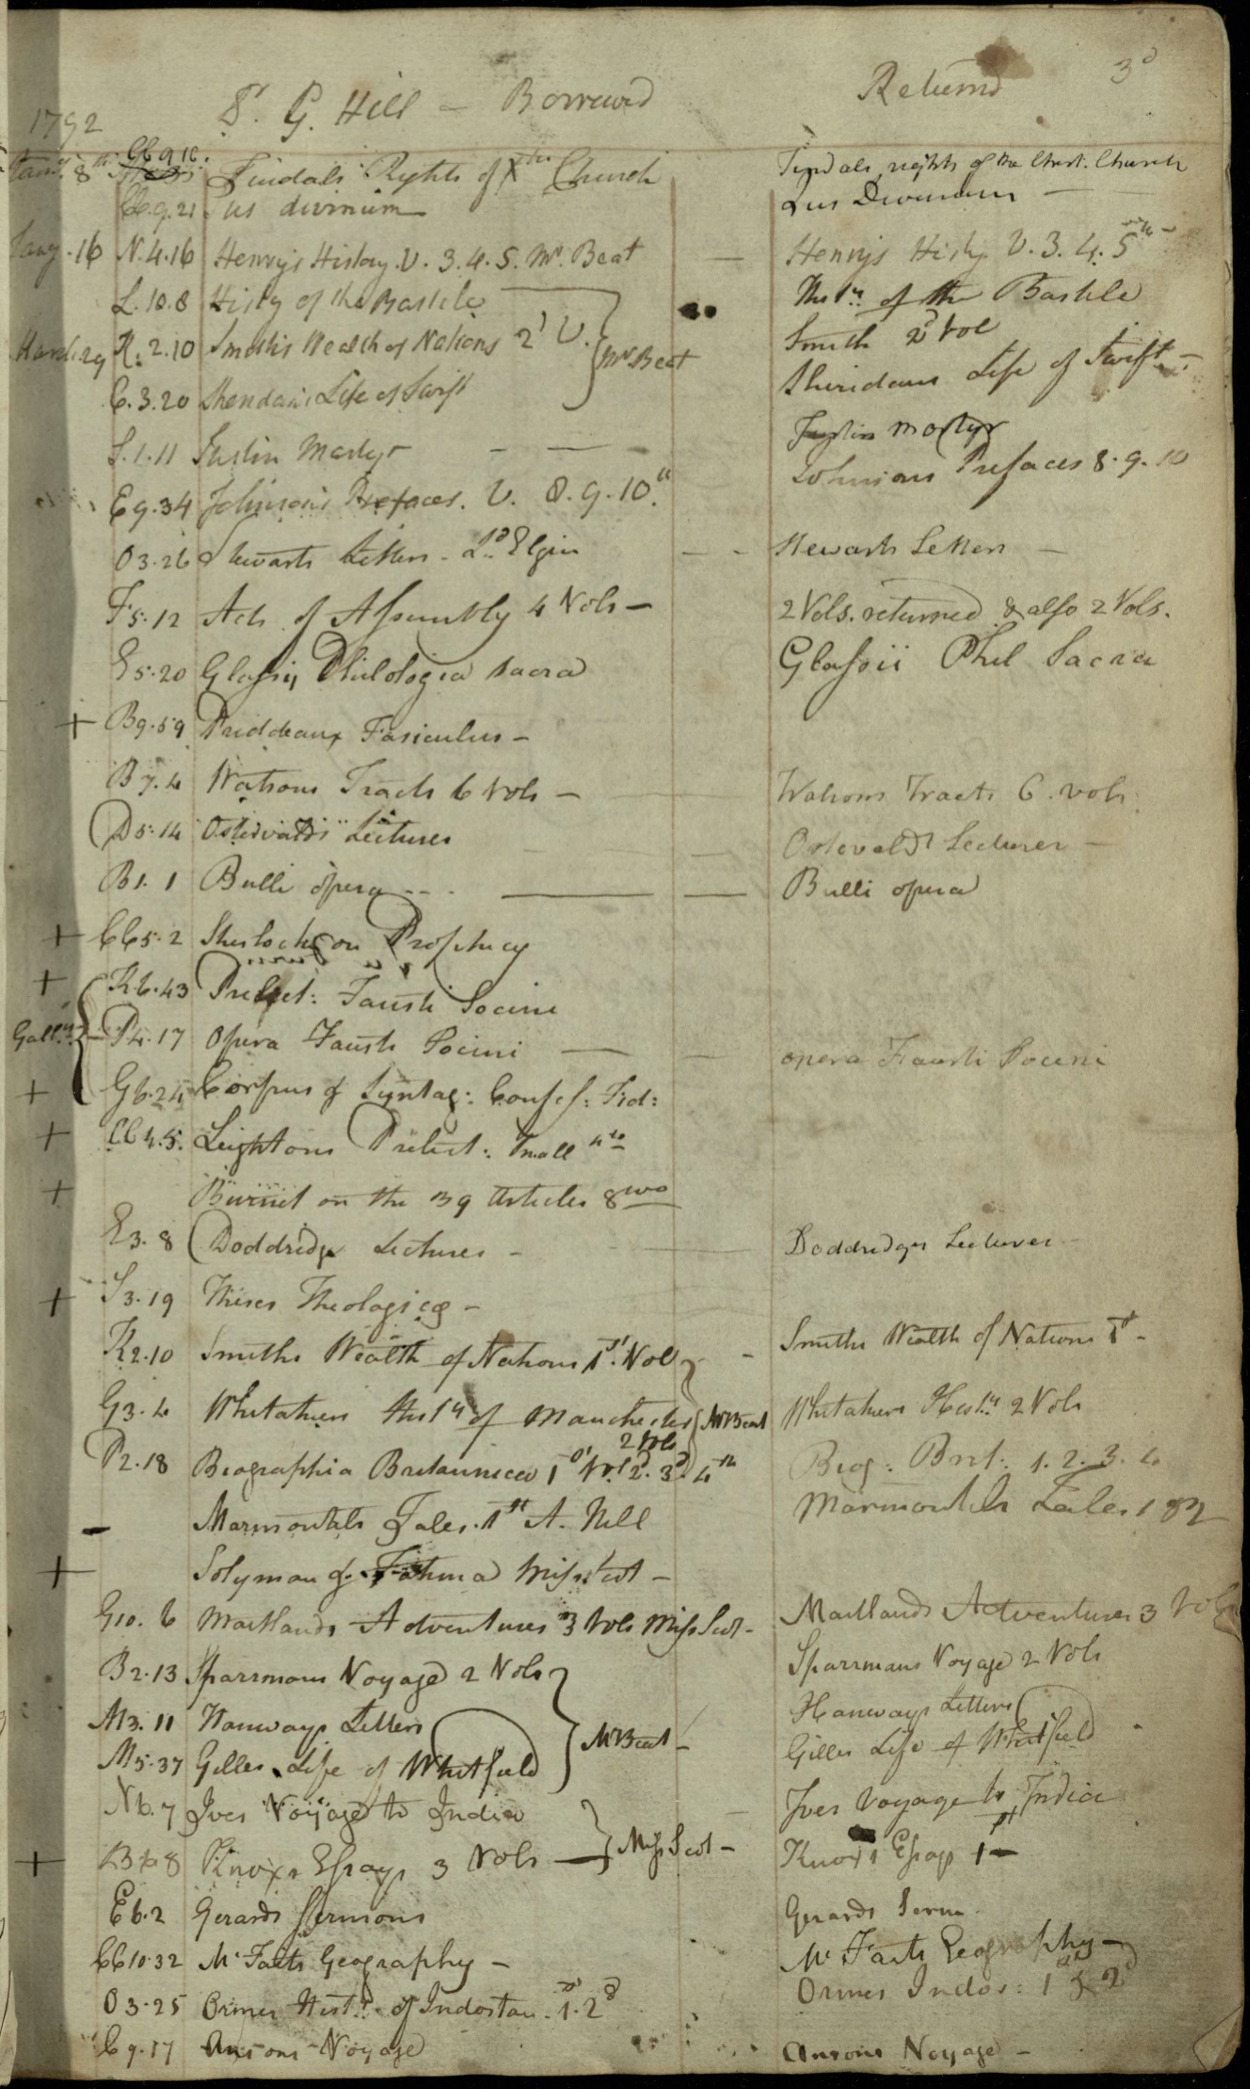 1792
Dr. G. Hill - Borrowed Returnd 3d
Jany. 8th CC.9.16. Tindals Rights of Xtn Church Tindals rights of the Christ. Church
CC.9.21 Jus divinum Jus Divinum -
Jany. 16 N.4.16 Henrys History. V. 3.4.5. Mr. Beat - Henrys Histy. V. 3. 4. 5th -
L.10.8 Histy of the Bastile Histy. of the Bastile
March 29 K.2.10 Smiths Wealth of Nations 2d V. Mr Beat Smith 2d Vol
C.3.20 Sheridans Life of Swift Sheridans Life of Swift -
S.1.11 Justin Martyr - Justin Martyr
E9.34 Johnson's Prefaces. V. 8.9.10th. Johnsons Prefaces 8.9.10
O3.26 Stewarts Letters - Ld. Elgin - - Stewarts Letters -
F5.12 Acts of Assembly 4 Vols - 2 Vols. returned & also 2 Vols.
E5.20 Glassij Philologia sacra Glassii Phil Sacra
+ B9.59 Priddeaux Fasiculus -
B7.4 Watsons Tracts 6 Vols - Watsons Tracts 6. vols.
D5.14 Ostervalds Lectures Ostevalds Lectures -
B1.1 Bulli opera - - - Bulli opera
+ CC5.2 Sherlock on Prophecy
+ K6.43 Prelect: Fausti Socini
P4.17 Opera Fausti Socini - - opera Fausti Socini
+ G6.24 Corpus & Syntag: Confes: Fid:
+ CC4.5. Leightons Prelect: Small 4to
+ Burnet on the 39 Articles 8vo
E3.8 Doddridge Lectures - Doddridges Lectures -
+ S3.19 Theses Theologicae -
K2.10 Smiths Wealth of Nations 1st. Vol - Smiths Wealth of Nations 1st -
G3.4 Whitakers Histy of Manchester 2 Vols Mr Beat Whitakers Histy. 2 Vols
P2.18 Biographia Britannica 1st Vol. 2d. 3d. 4th Biog: Brit: 1. 2. 3. 4
- Marmontels Tales. 1st A. Hill Marmontels Tales 1 & 2
+ Solyman & Fatima Miss Scot -
G10.6 Maitlands Adventures 3 Vols Miss Scot - Maitlands Adventures 3 Vols
B2.13 Sparrmans Voyage 2 Vols Sparrmans Voyage 2 Vols
M3.11 Hanways Letters Mr Beat - Hanways Letters
M5.37 Gillies Life of Whitfield Gillies Life of Whitfield
N6.7 Ives Voyage to India - Ives Voyage to India
+ Knoxs Essays 3 Vols - Miss Scot - Knoxs Essays 1st -
E6.2 Gerards Sermons Gerards Serm.
CC10.32 Mc Faits Geography - Mc Faits Geography -
O3.25 Ormes Hist. of Indostan. 1st. 2d Ormes Indos: 1st & 2d
C9.17 Ansons Voyage Ansons Voyage -